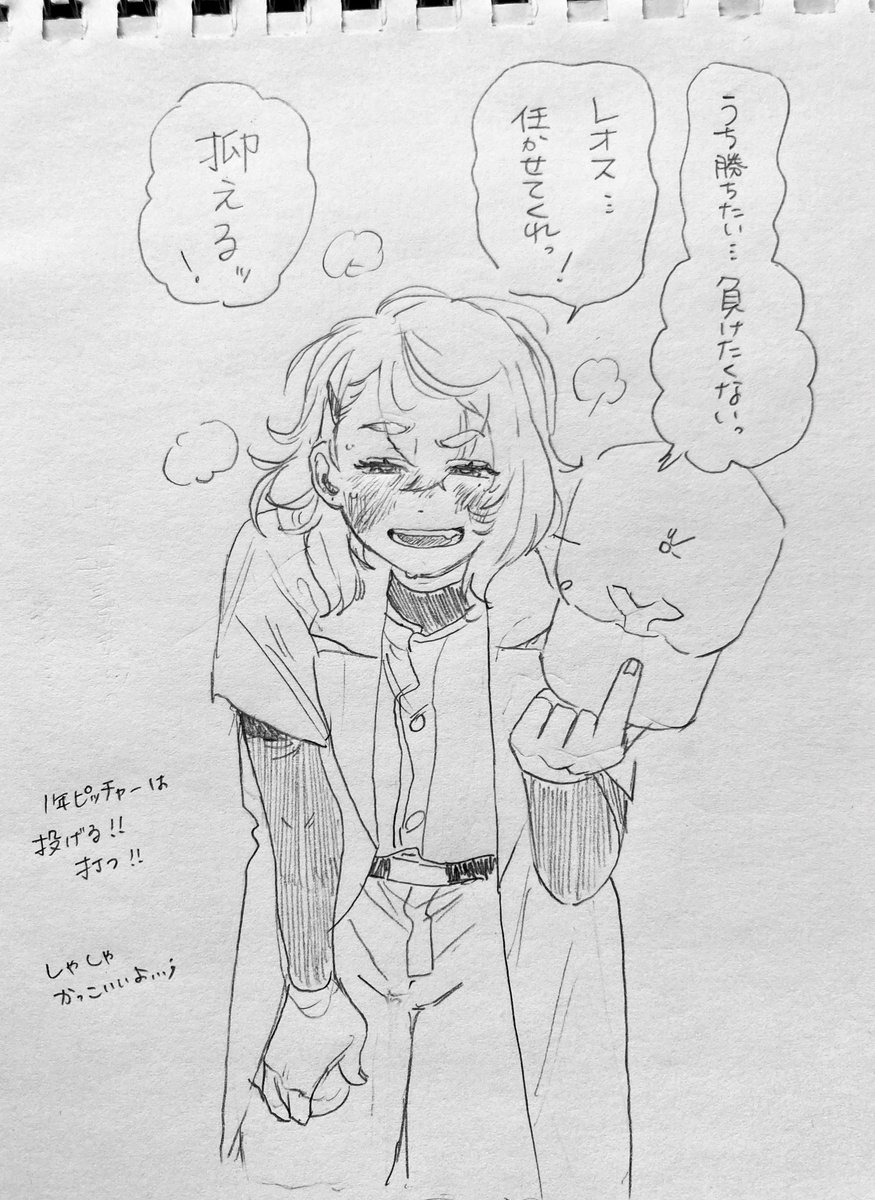 うち勝ちたい…
負けたくないっ
レオス…
任かせてくれっ!
抑えるッ!
1年ピッチャーは
投げる!!
打つ!!
しゃしゃ
かっこいいよ…;